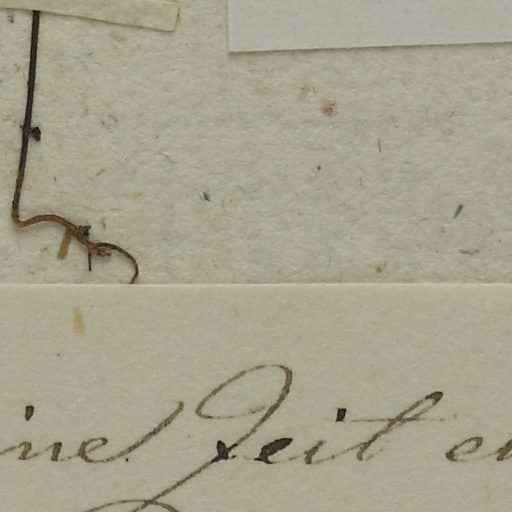 ine Zeit